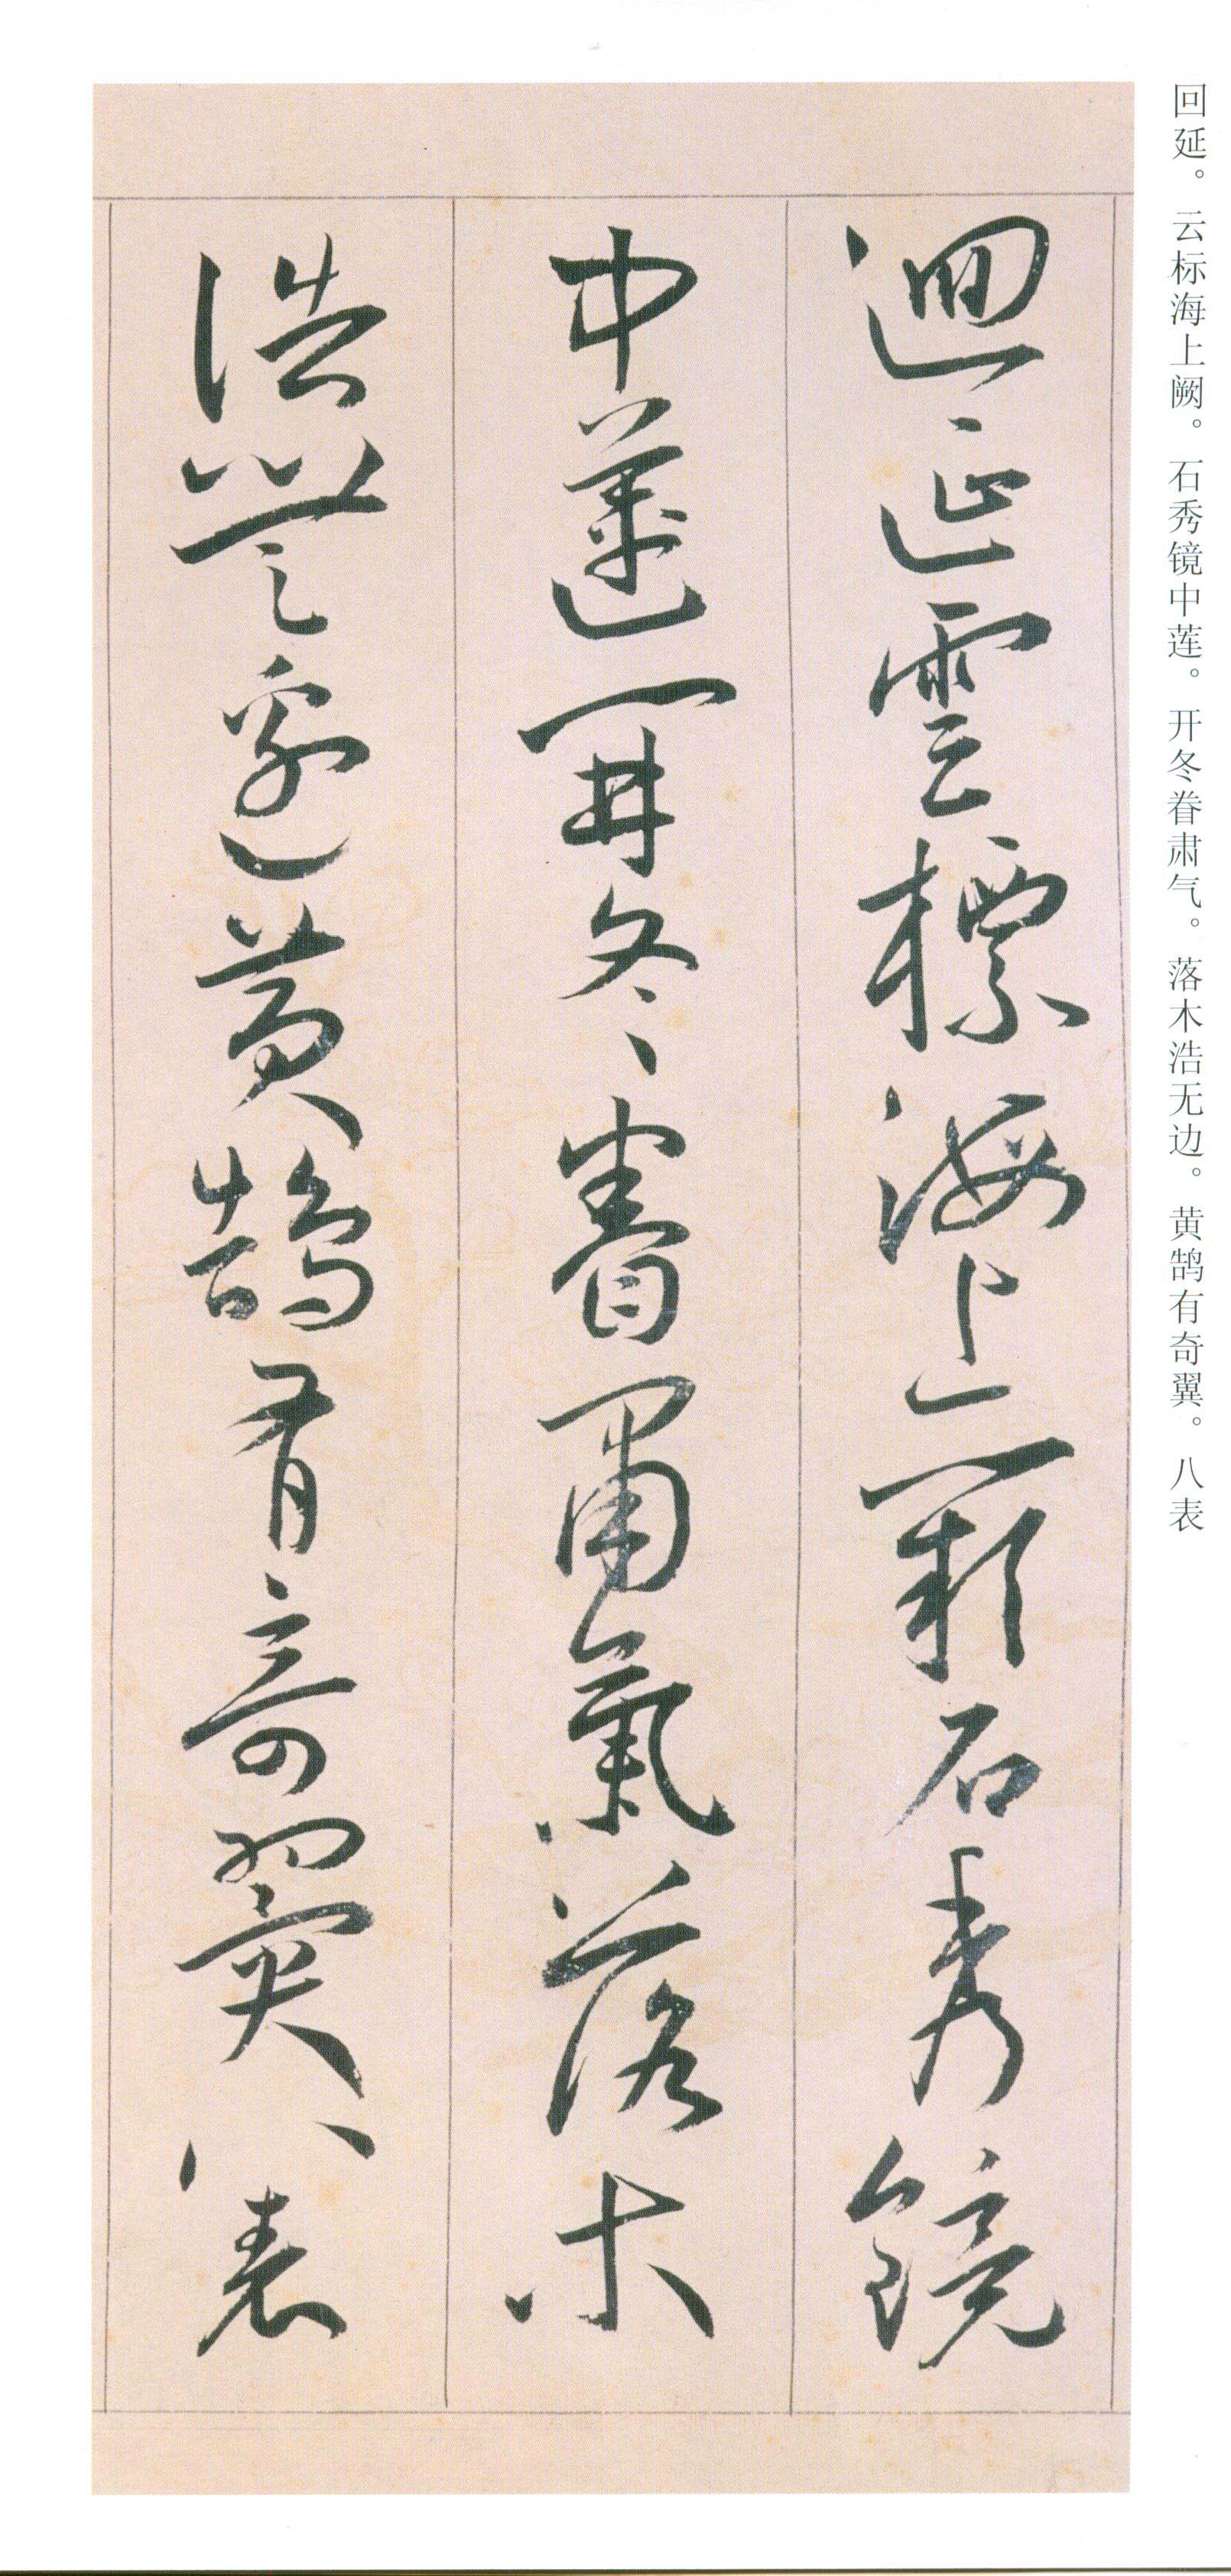 回延。云标海上阙。石秀镜中莲。开冬眷肃气。落木浩无边。黄鹄有奇翼。八表
迴延雲標海上闕石秀鏡
中蓮開冬眷肅氣落木
浩無邊黃鵠有奇翼八表